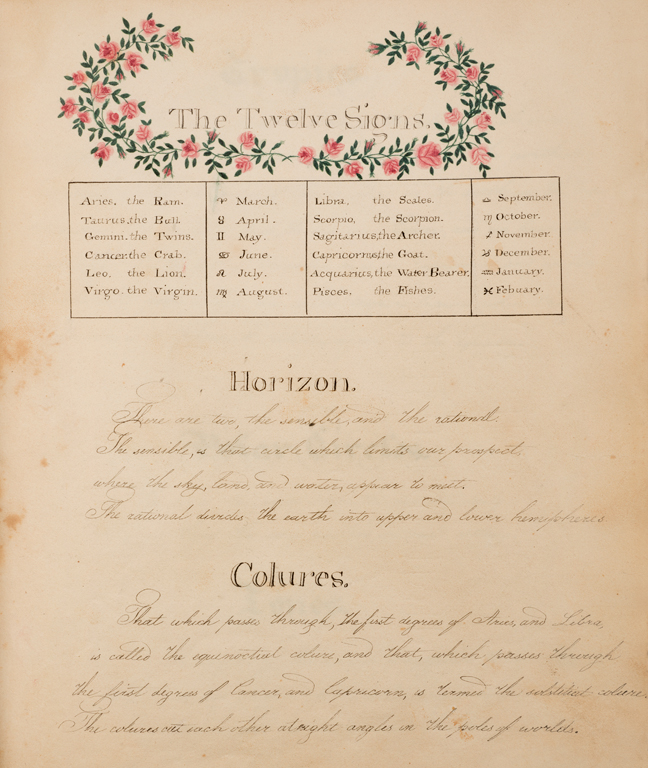 The Twelve Signs.
Aries, the Ram. ♈ March. Libra, the Scales. ♎ September.
Taurus, the Bull. ♉ April. Scorpio, the Scorpion. ♏ October.
Gemini. the Twins. ♊ May. Sagitarius, the Archer. ♐ November.
Cancer. the Crab. ♋ June. Capricornus, the Goat. ♑ December.
Leo. the Lion. ♌ July. Acquarius, the Water Bearer. ♒ January.
Virgo. the Virgin. ♍ August. Pisces, the Fishes. ♓ Febuary.
Horizon.
There are two, the sensible, and the rational.
The sensible, is that circle which limits our prospect,
where the sky, land, and water, appear to meet.
The rational divides the earth into upper and lower hemispheres
Colures.
That which passes through, the first degrees of Aries, and Libra,
is called the equenoctial colure, and that, which passes through
the first degrees of Cancer, and Capricorn, is termed the solstitial colure.
The colures cut each other at right angles in the poles of worlds.